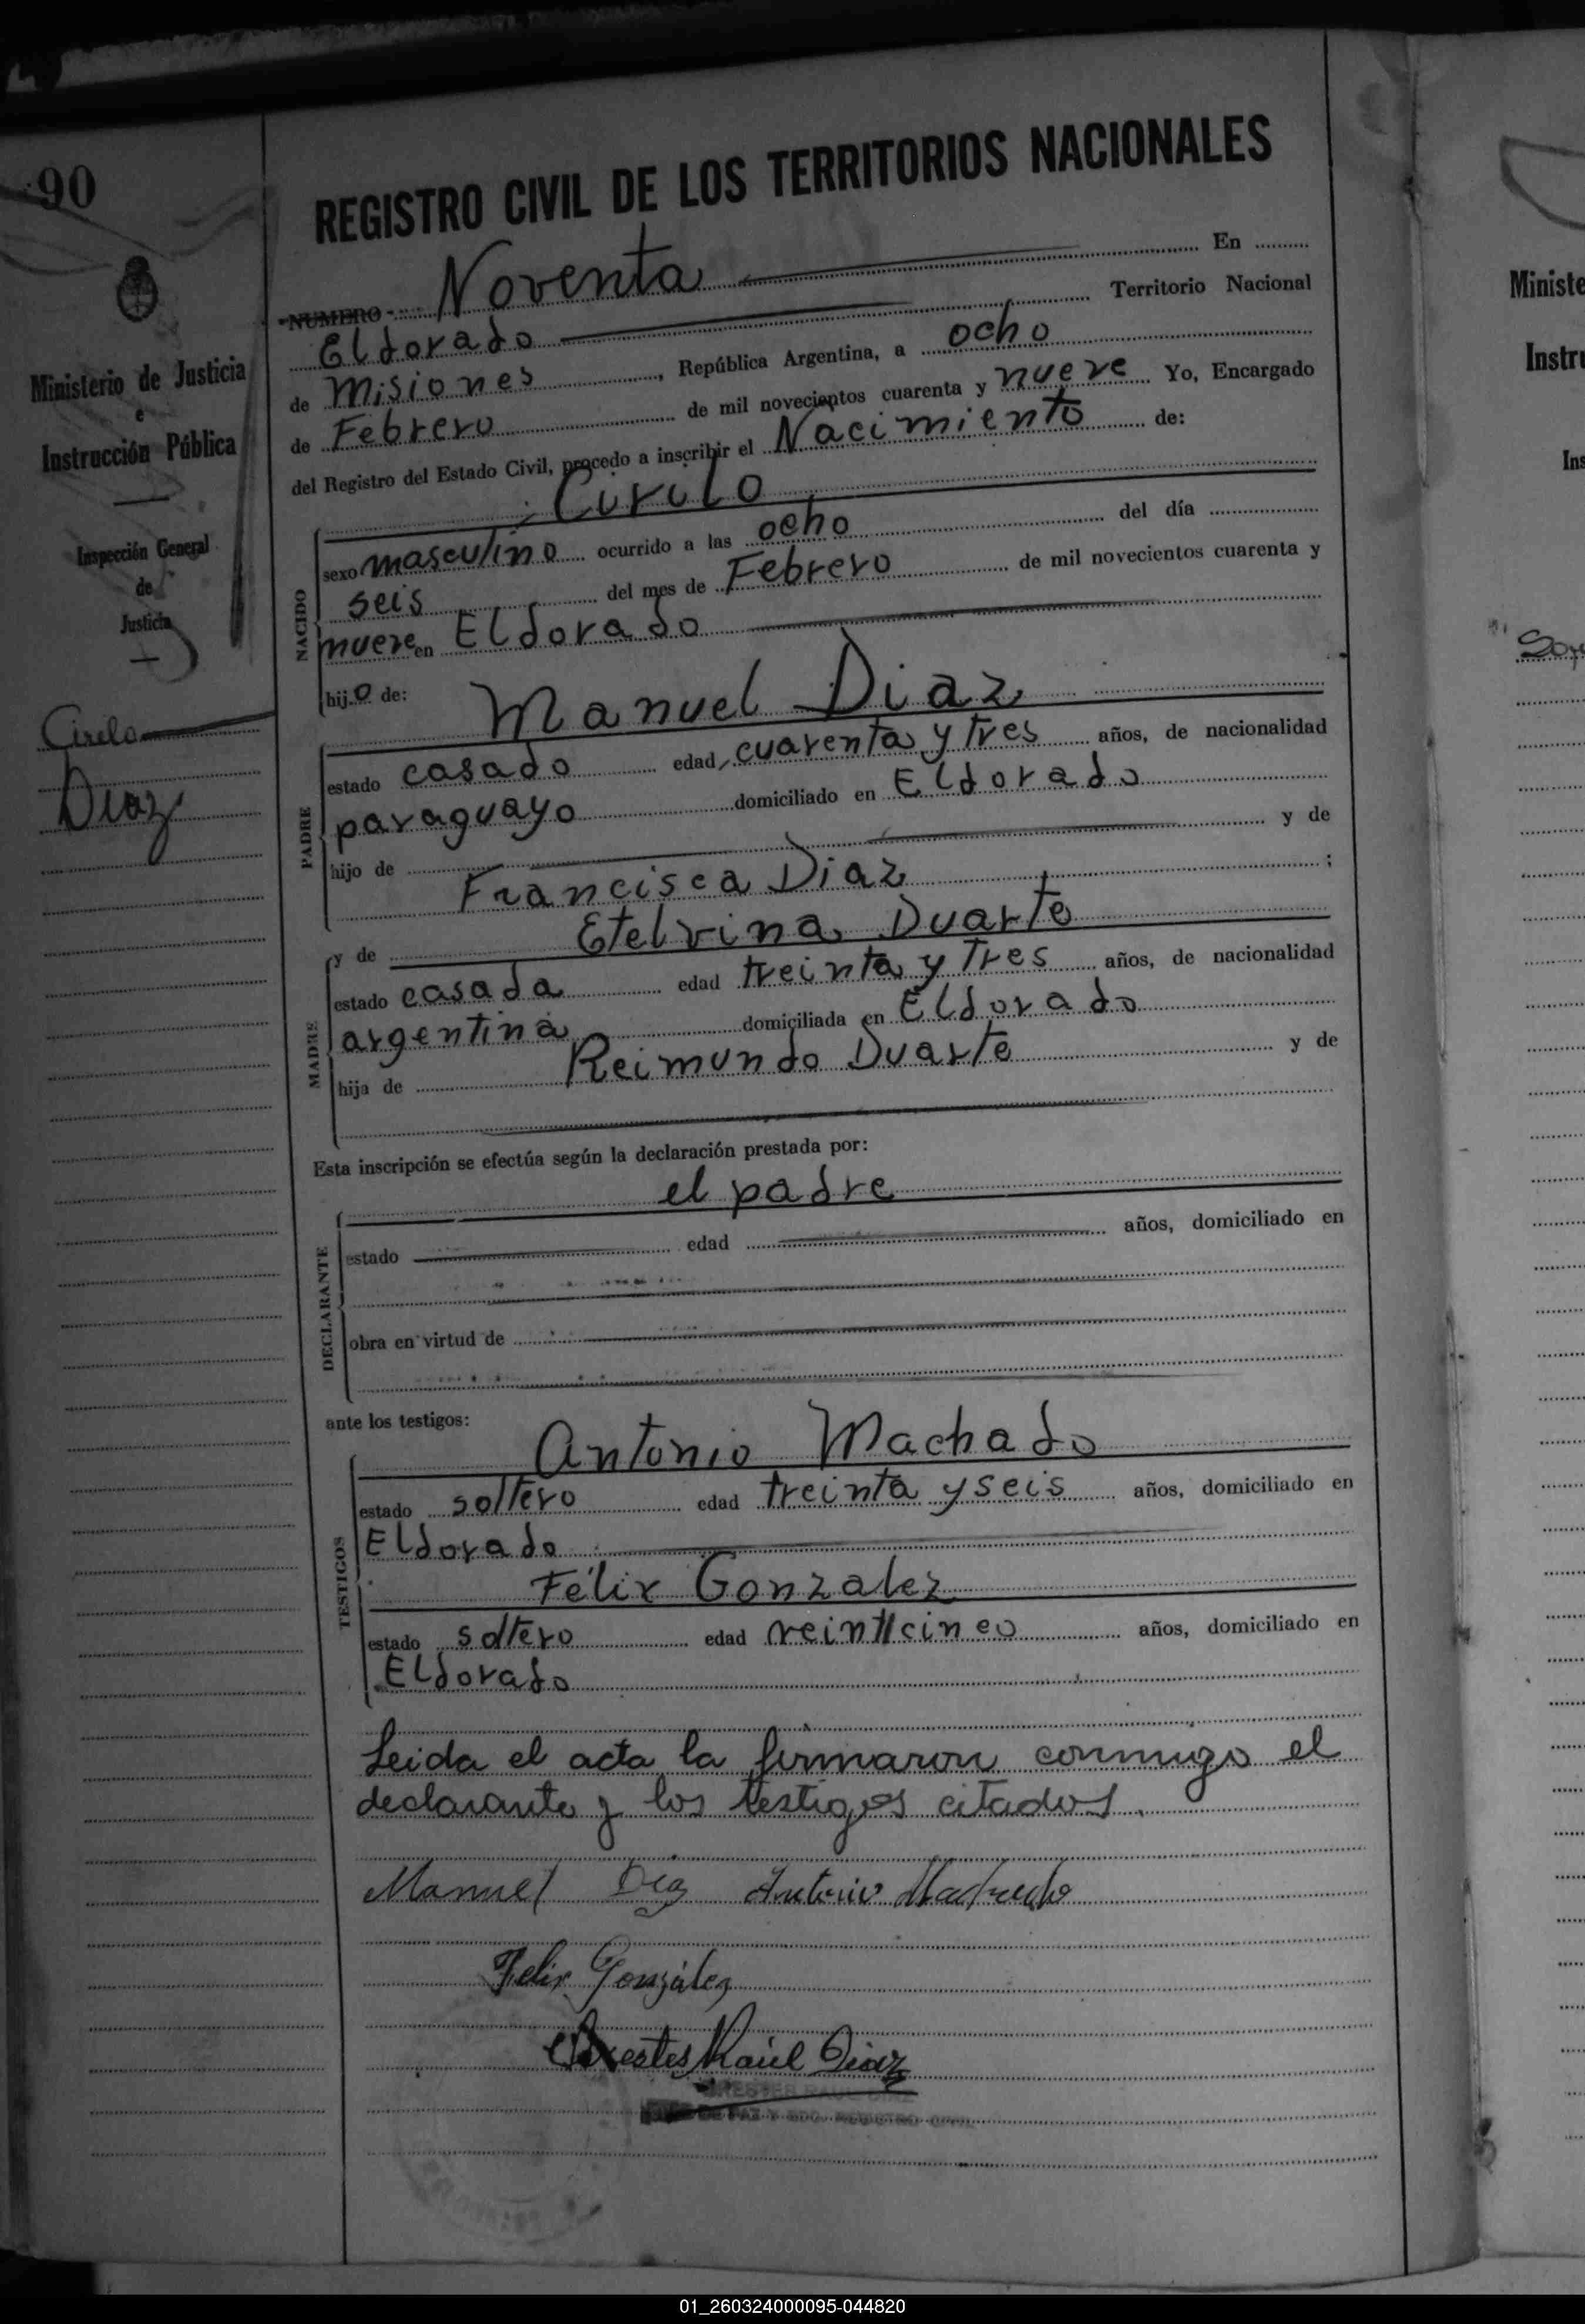 90
Ministerio de Justicia
e
Instrucción Pública
Inspección General
de
Justicia
Cirelo
Diaz
REGISTRO CIVIL DE LOS TERRITORIOS NACIONALES
NUMERO Noventa En
Eldorado Territorio Nacional
de Misiones, República Argentina, a ocho
de Febrero de mil novecientos cuarenta y nueve Yo, Encargado
del Registro del Estado Civil, procedo a inscribir el Nacimiento de:
Cirilo
NACIDO
sexo masculino ocurrido a las ocho del día
seis del mes de Febrero de mil novecientos cuarenta y
nueve en Eldorado
hijo de: Manuel Diaz
PADRE
estado casado edad cuarenta y tres años, de nacionalidad
paraguayo domiciliado en Eldorado
hijo de y de
Francisca Diaz ;
y de Etelvina Duarte
MADRE
estado casada edad treinta y tres años, de nacionalidad
argentina domiciliada en Eldorado
hija de Reimundo Duarte y de
Esta inscripción se efectúa según la declaración prestada por:
el padre
DECLARANTE
estado edad años, domiciliado en
obra en virtud de
ante los testigos:
Antonio Machado
TESTIGOS
estado soltero edad treinta y seis años, domiciliado en
Eldorado
Félix Gonzalez
estado soltero edad veinticinco años, domiciliado en
Eldorado
Leida el acta la firmaron conmigo el
declarante y los testigos citados.
Manuel Diaz Antonio Machado
Felix González
Orestes Raúl Diaz
DE PAZ Y EDO. REGISTRO CIVIL
Ministe
Instru
Ins
01_260324000095-044820